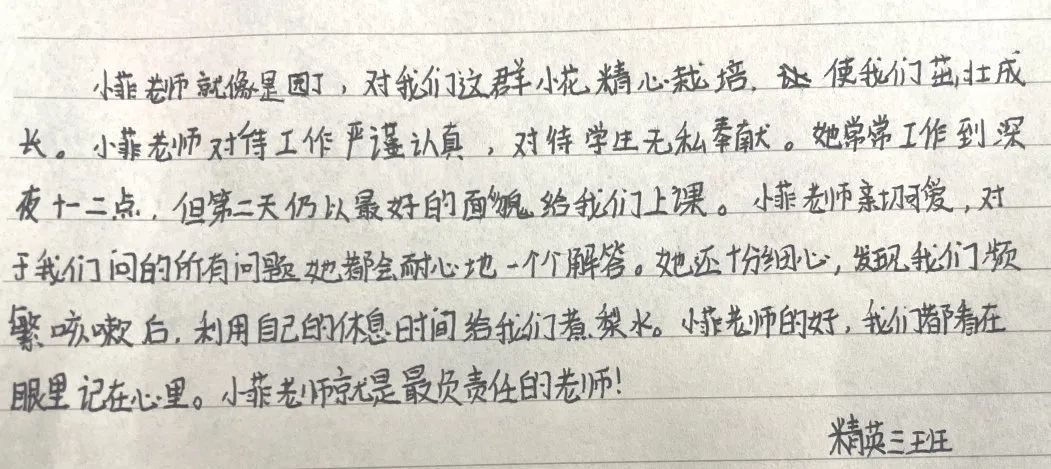 小菲老师就像是园丁，对我们这群小花精心栽培，使我们茁壮成
长。小菲老师对待工作严谨认真，对待学生无私奉献。她常常工作到深
夜十一二点，但第二天仍以最好的面貌给我们上课。小菲老师亲切可爱，对
于我们问的所有问题她都会耐心地一个个解答。她还十分细心，发现我们频
繁咳嗽后，利用自己的休息时间给我们煮梨水。小菲老师的好，我们都看在
眼里记在心里。小菲老师就是最负责任的老师！
精英三班